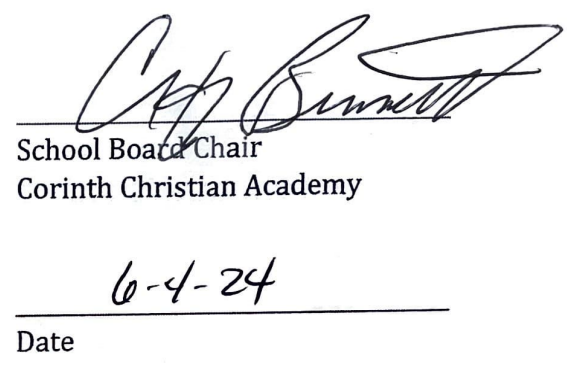 Bennett
School Board Chair
Corinth Christian Academy
6-4-24
Date